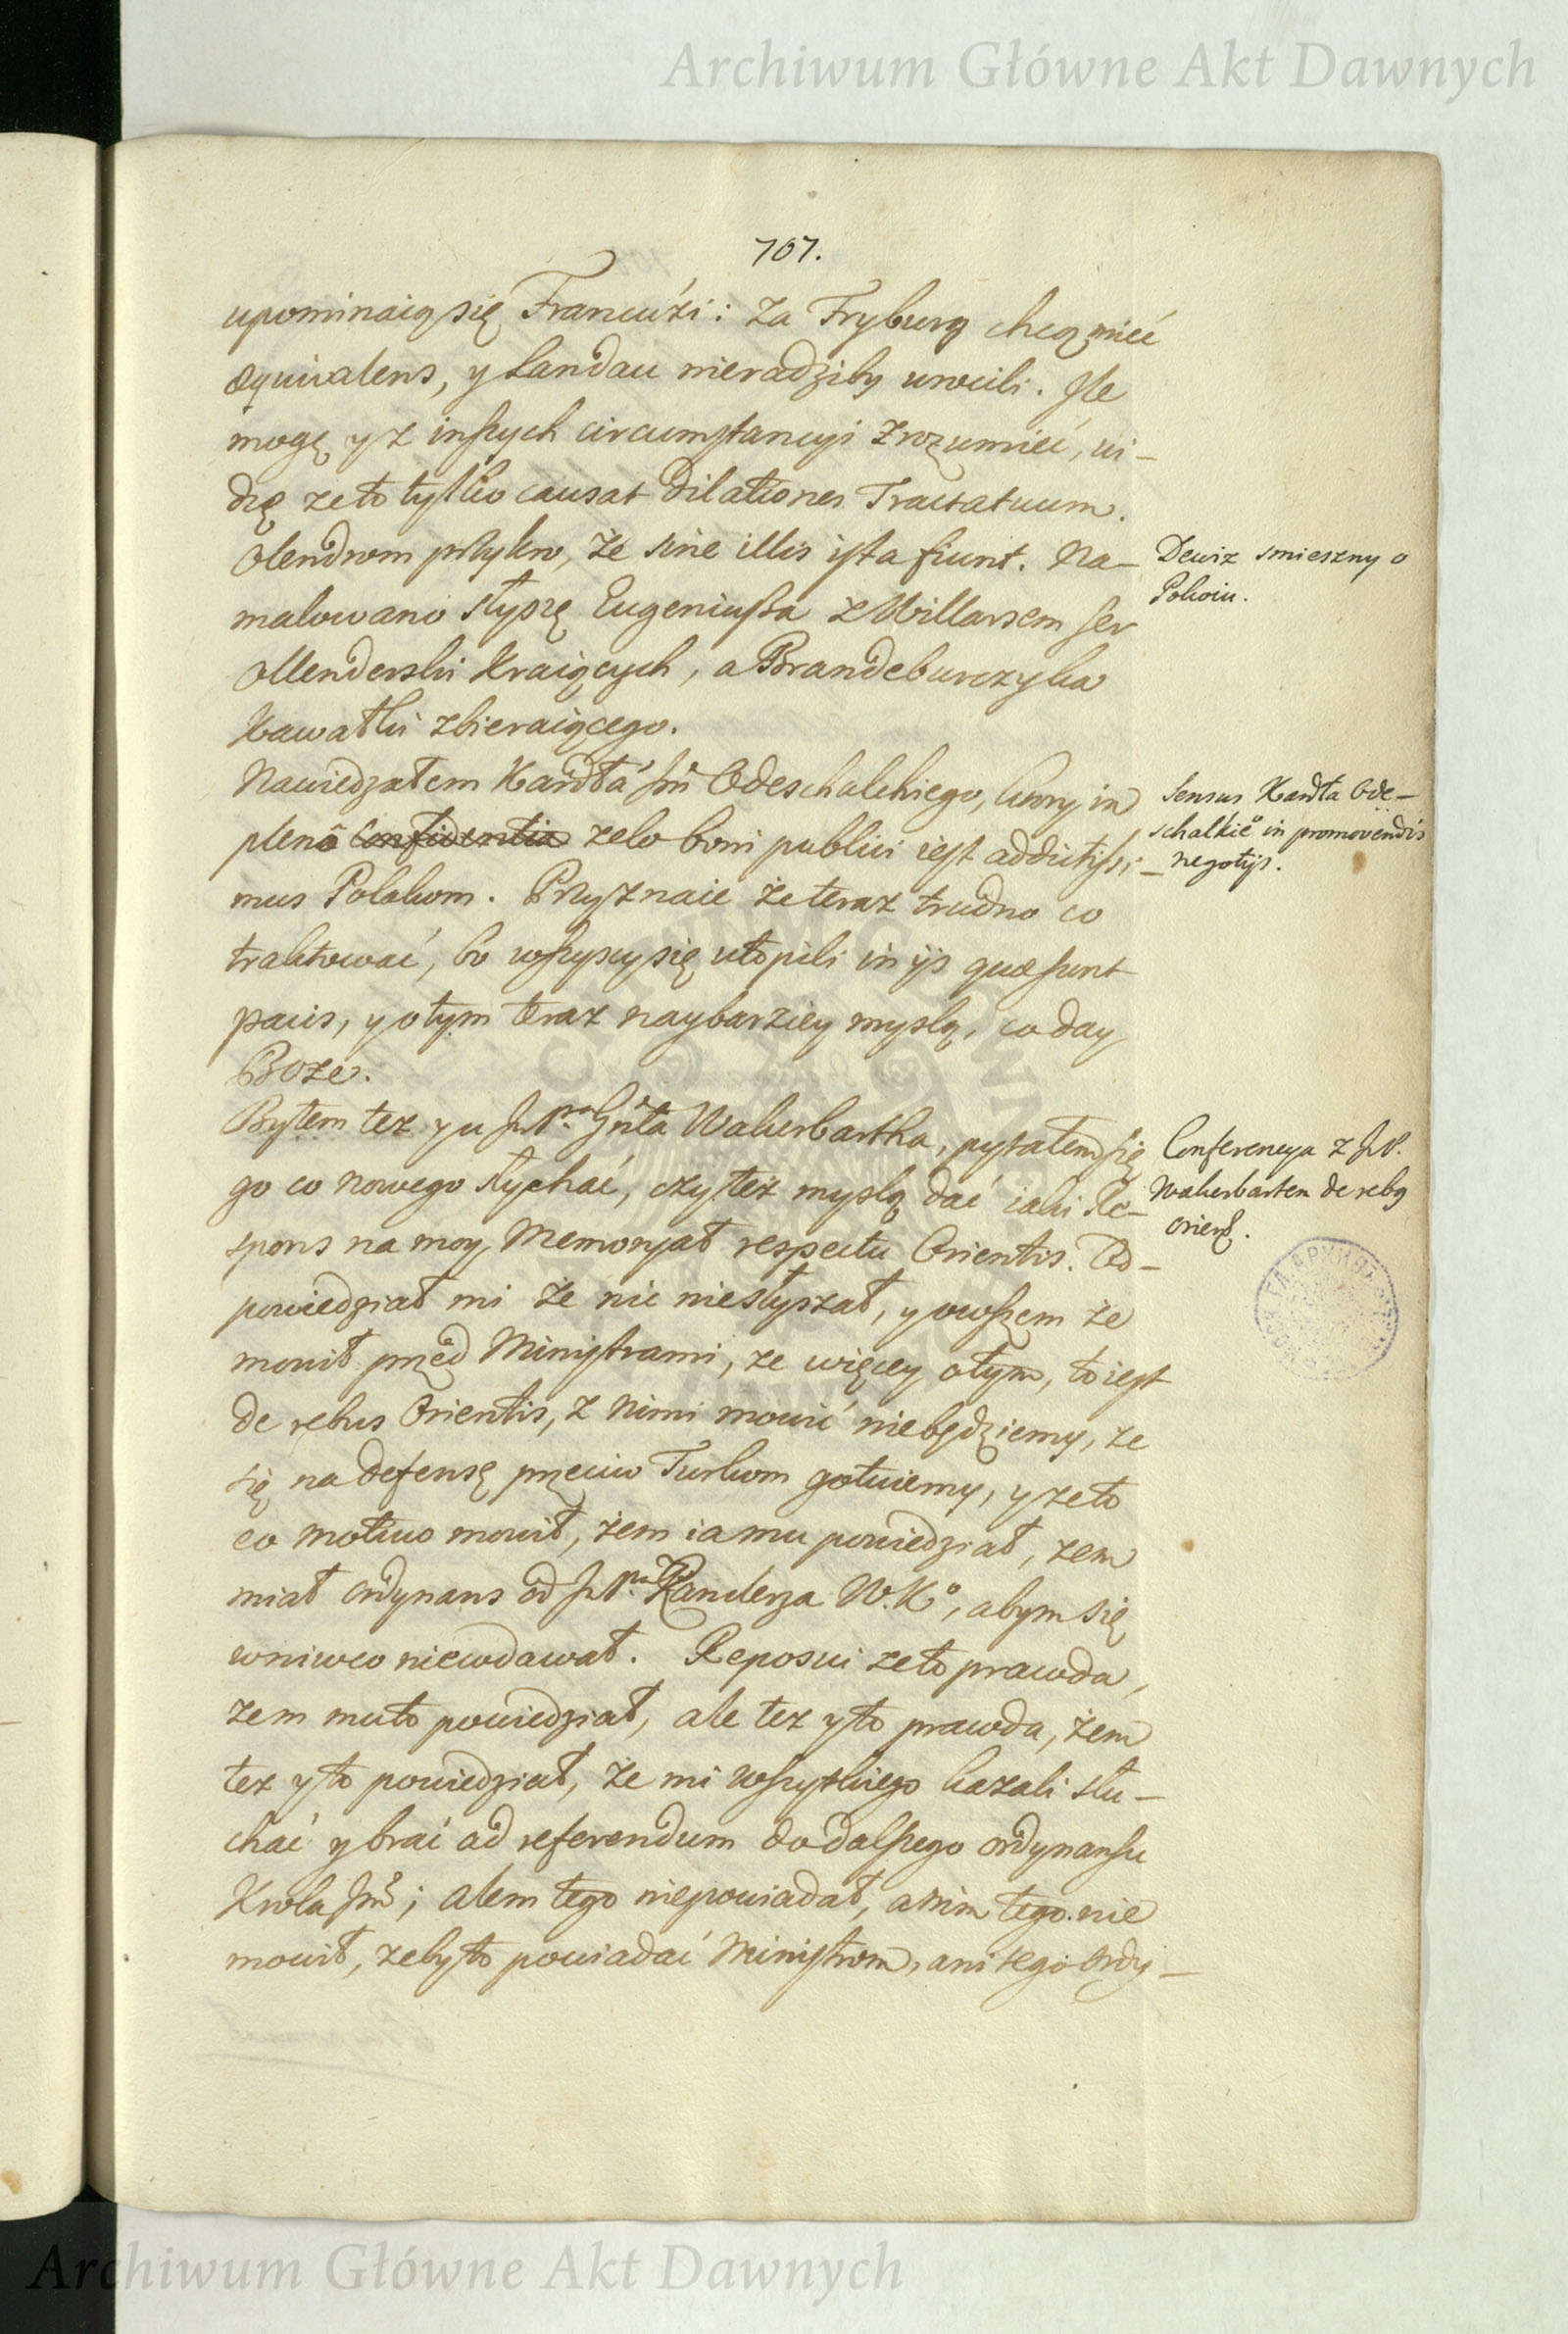 Archiwum Główne Akt Dawnych
707.
upominaią się Francuźi: Za Fryburg chcą mieć
æquivalens, y Landau nieradziby wrocili. Ile
mogę y z inszych circumstancyi zrozumieć, wi-
dzę ze to tylko causat dilationes Tractatuum.
Olendrom przykro, że sine illis ista fiunt. Na-
Dewiz smieszny o
Pokoiu.
malowano słyszę Eugeniusza z Willarsem ser
Ollenderski kraiących, a Brandeburczyka
kawałki zbieraiącego.
Nawiedzałem Kardła Jm̃ Odeschalchiego, ktory in
Sensus Kardła Ode-
schalkie͠ in promovendis
negotijs.
plenô Confidentia zelo boni publici iest addictissi-
mus Polakom. Przyznaie że teraz trudno co
traktować, bo wszyscy się utopili in ijs quæ sunt
pacis, y o tym teraz naybarziey myslą, co day
Boze.
Byłem tez y u JP.ͣ Gn̄ła Wakerbartha, pytałem się
Conferencya z JP.
Wakerbartem de reb9
orient.
go co nowego słychać, czy też myslą dać iaki Re-
spons na moy Memoryał respectu Orientis. Od-
powiedział mi że nic niesłyszał, y owszem że
mowił przed Ministrami, ze więcey o tym, to iest
de rebus Orientis, z nimi mowić niebędziemy, ze
się na defensę przeciw Turkom gotuiemy, y ze to
eo motivo mowił, żem ia mu powiedział, zem
miał ordynans od JP.ͣ Kanclerza W. Kº, abym się
wniwco niewdawał. Reposui ze to prawda,
zem mu to powiedział, ale tez y to prawda, żem
tez y to powiedział, że mi wszytkiego kazali słu-
chać y brać ad referendum do dalszego ordynansu
Krola Jm̃; alem tego niepowiadał, anim tego nie
mowił, zeby to powiadać Ministrom, ani tego ordy-
Archiwum Główne Akt Dawnych